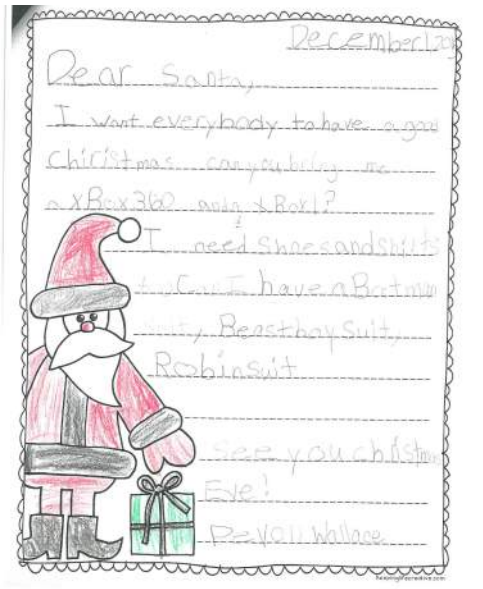 December 1, 20
Dear Santa,
I want everybody to have a good
Chiristmas can you bring me
a xBox360 and a xBox1?
I need shoes and shirts
too Can I have a Batman
suit, Beastboy suit,
Robin suit
See you christmas
Eve!
Wallace